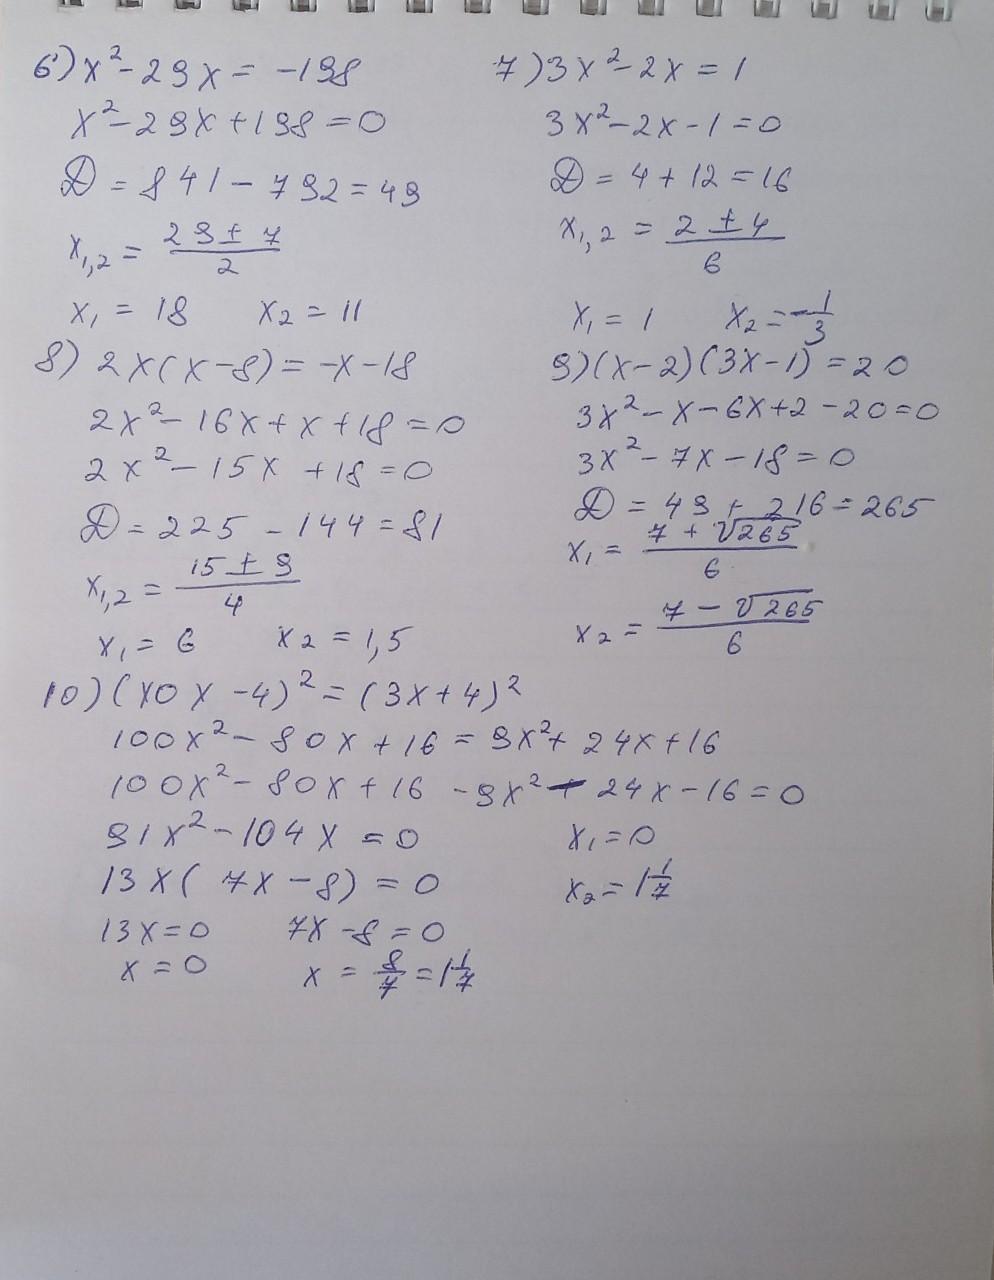 6) x² - 29x = -198
x² - 29x + 198 = 0
D = 841 - 792 = 49
x₁,₂ = (29 ± 7)/2
x₁ = 18 x₂ = 11
7) 3x² - 2x = 1
3x² - 2x - 1 = 0
D = 4 + 12 = 16
x₁,₂ = (2 ± 4)/6
x₁ = 1 x₂ = -1/3
8) 2x(x - 8) = -x - 18
2x² - 16x + x + 18 = 0
2x² - 15x + 18 = 0
D = 225 - 144 = 81
x₁,₂ = (15 ± 9)/4
x₁ = 6 x₂ = 1,5
9) (x - 2)(3x - 1) = 20
3x² - x - 6x + 2 - 20 = 0
3x² - 7x - 18 = 0
D = 49 + 216 = 265
x₁ = (7 + √265)/6
x₂ = (7 - √265)/6
10) (10x - 4)² = (3x + 4)²
100x² - 80x + 16 = 9x² + 24x + 16
100x² - 80x + 16 - 9x² - 24x - 16 = 0
91x² - 104x = 0
13x(7x - 8) = 0
13x = 0 7x - 8 = 0
x = 0 x = 8/7 = 1 1/7
x₁ = 0
x₂ = 1 1/7